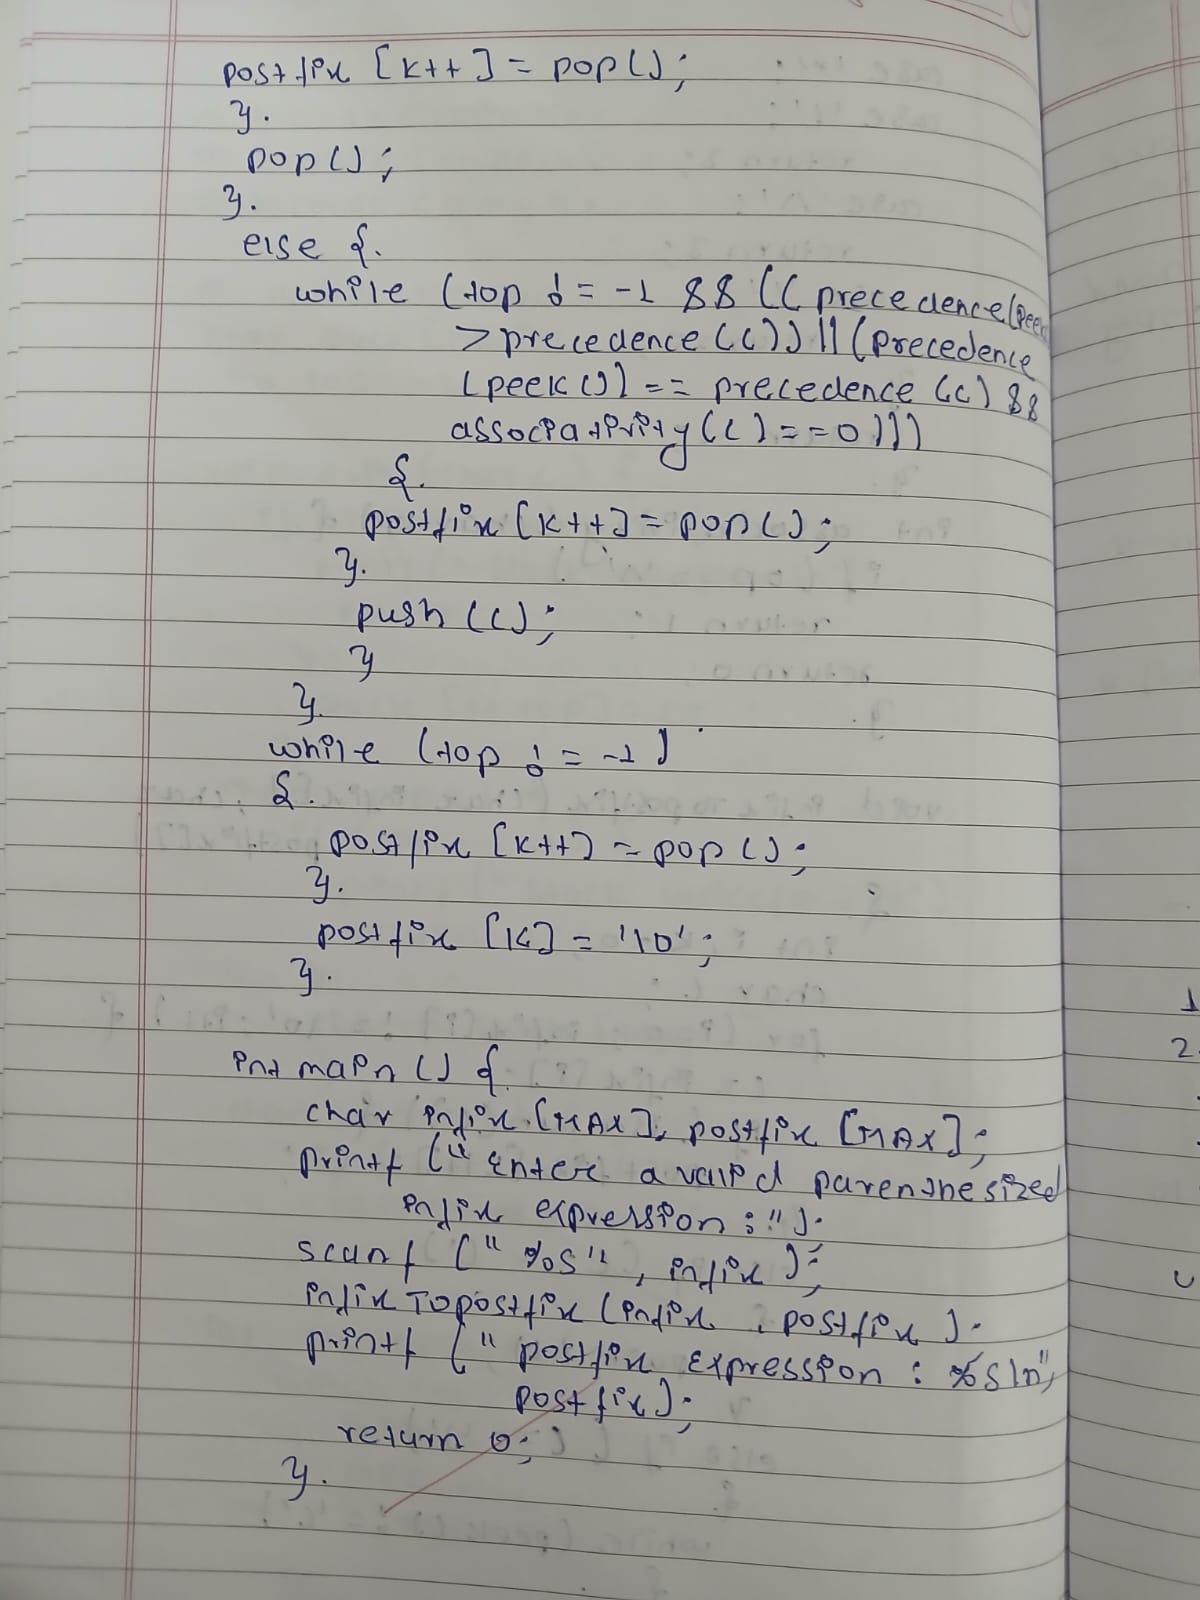 postfix [k++] = pop();
}.
pop();
}.
else {.
while (top != -1 && ((precedence(peek
>precedence(c)) || (precedence
(peek()) == precedence (c) &&
associativity(c) == 0)))
{.
postfix [k++] = pop();
}.
push (c);
}
}.
while (top != -1)
{.
postfix [k++] = pop();
}.
postfix [k] = '\0';
}.
int main () {.
char infix [MAX], postfix [MAX];
printf ("Enter a valid parenthesized
infix expression :");
scanf ("%s", infix);
infixTopostfix (infix, postfix);
printf ("postfix expression : %s\n",
postfix);
return 0;
}.
1
2.